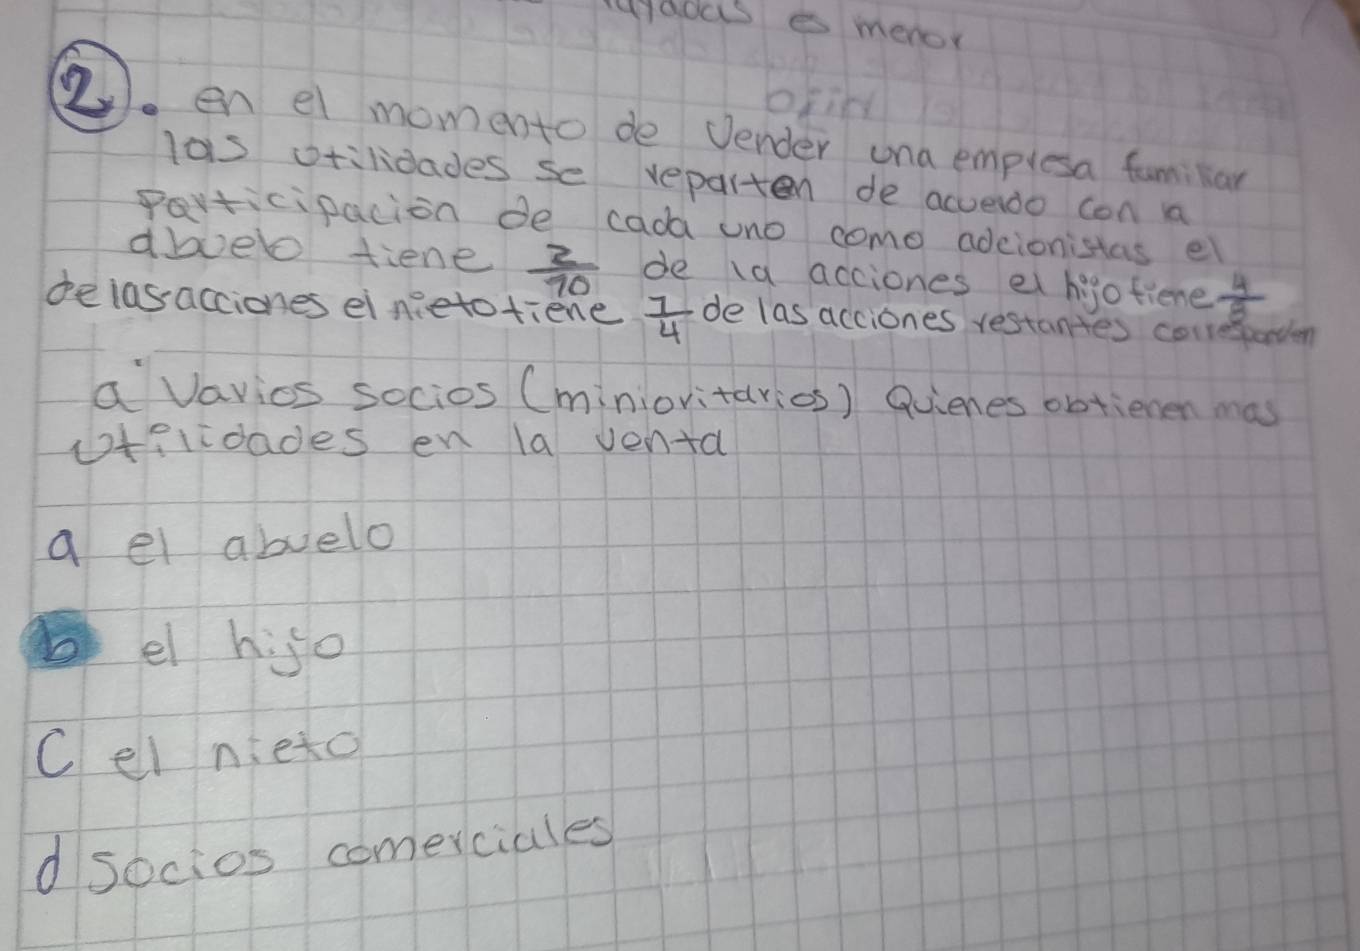 es menor
2. en el momento de Vender una empresa familiar
las utilidades se reparten de acuerdo con la
Participación de cada uno como adcionistas el
abuelo tiene 2/10 de la acciones el hijo tiene 4/8
de las acciones el nieto tiene 1/4 de las acciones restantes corresponden
a Varios socios (minioritarios) Quienes obtienen mas
utilidades en la venta
a el abuelo
b el hijo
C el nieto
d socios comerciales